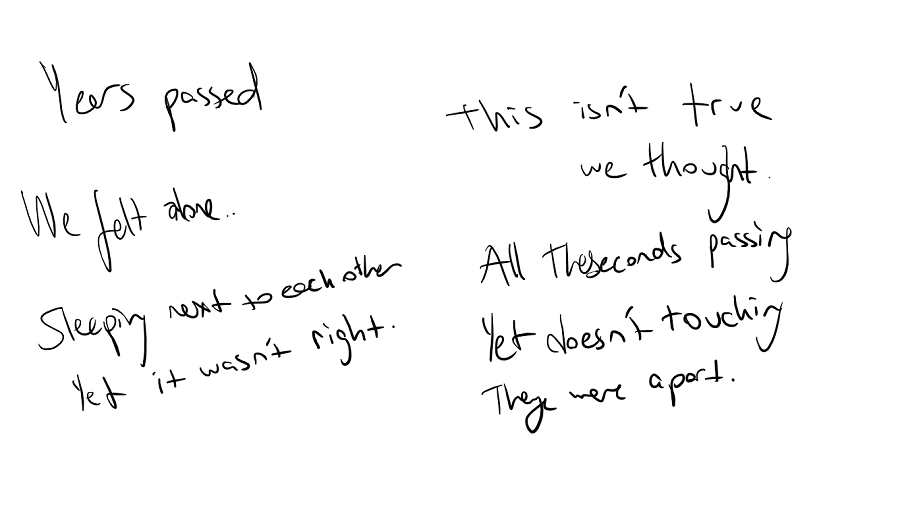 Years passed
We felt alone..
Sleeping next to each other
Yet it wasn't right.
this isn't true
we thought.
All Theseconds passing
Yet doesn't touching
They were apart.